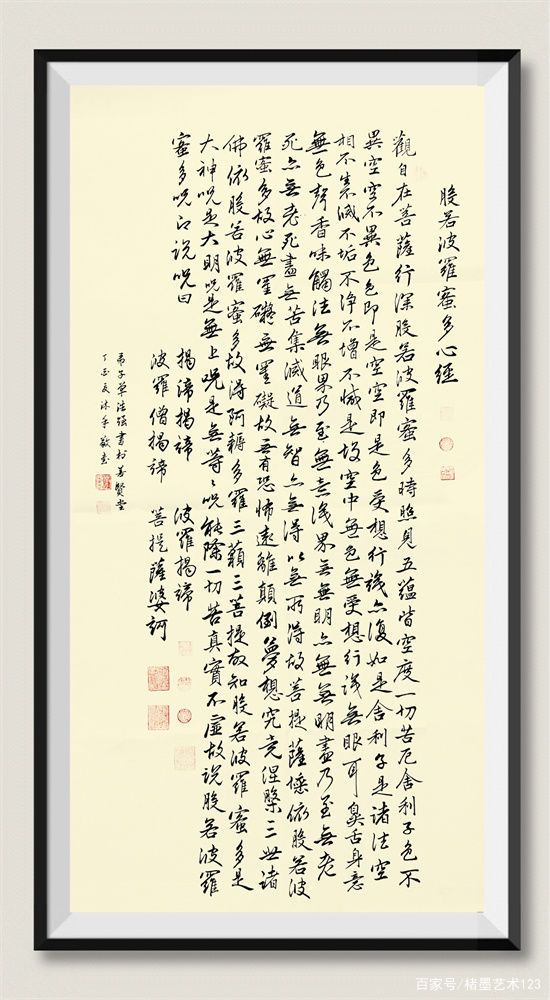 般若波羅蜜多心經
觀自在菩薩行深般若波羅蜜多時照見五蘊皆空度一切苦厄舍利子色不
異空空不異色色即是空空即是色受想行識亦復如是舍利子是諸法空
相不生滅不垢不淨不增不減是故空中無色無受想行識無眼耳鼻舌身意
無色聲香味觸法無眼界乃至無意識界無無明亦無無明盡乃至無老
死亦無老死盡無苦集滅道無智亦無得以無所得故菩提薩埵依般若波
羅蜜多故心無罣礙無罣礙故無有恐怖遠離顛倒夢想究竟涅槃三世諸
佛依般若波羅蜜多故得阿耨多羅三藐三菩提故知般若波羅蜜多是
大神咒是大明咒是無上咒是無等々咒能除一切苦真實不虛故說般若波羅
蜜多咒即說咒曰
揭諦揭諦 波羅揭諦
波羅僧揭諦 菩提薩婆訶
弟子單法強書於善賢堂
丁酉夏沐手敬書
百家号/楮墨艺术123